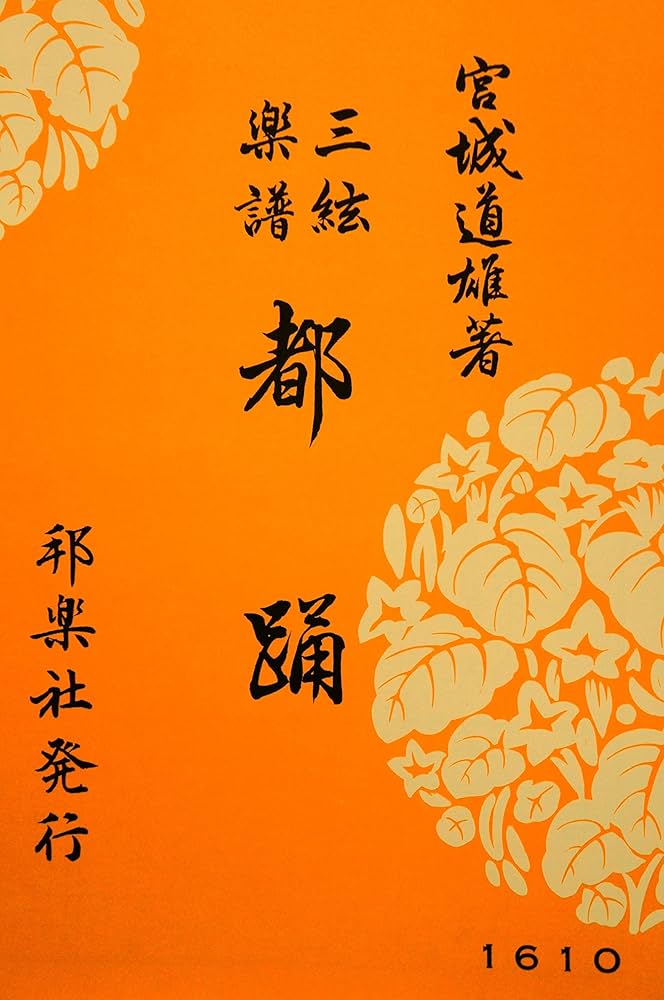 宮城道雄著
三絃
楽譜
都踊
邦楽社発行
1610